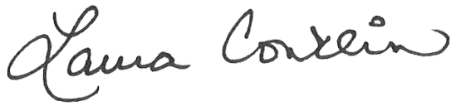 Laura Conklin